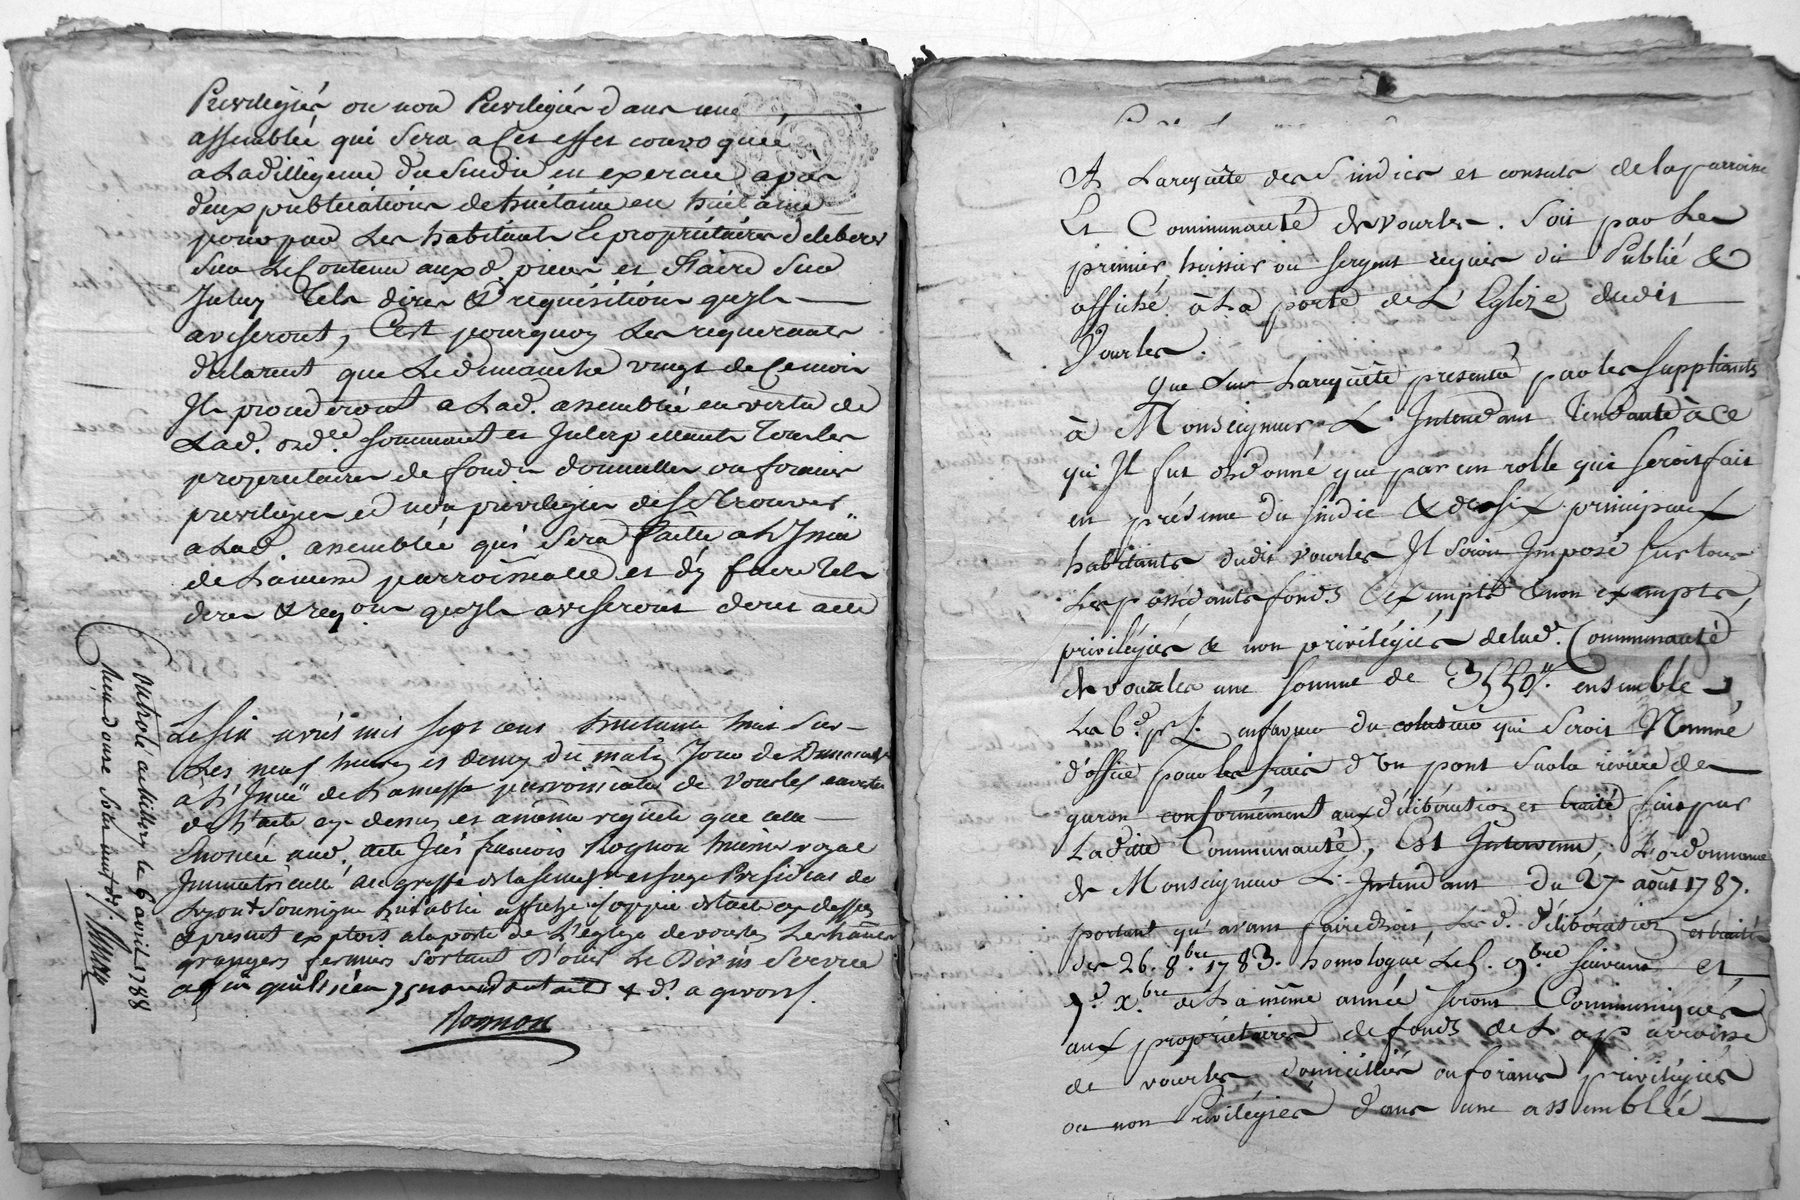 Privilegiés ou non Privilegiés dans une
assemblée qui sera a Cet effet convoquée
a La dilligence du Sindic en exercice apres
deux publications de huitaine en huitaine
pour par Les habitants & propriétaires deliberer
sur Le Contenu aux d. pieces et Faire sur
Iceluy tels dires & requisitions qu'ils
aviseront, C'est pourquoy Les requerants
declarent que Le dimanche vingt de Ce mois
Ils procederont a Lad. assemblée en vertu de
Lad. ord.ce sommant et Interpellants tous les
propriétaires de fonds domiciliés ou forains
privilegiés et non privilegiés de se trouver
a Lad. assemblée qui sera faitte a L'Issüe
de La messe parroissialle et d'y faire tels
dires & req.ons qu'ils aviseront dont acte
Le six avril mil sept cent huitante huit sur
Les neuf heures et demy du matin Jour de Dimanche
à L'Issüe de La messe parroissialle de Vourles en vertu
de L'acte cy dessus et a même requête que celle
Enoncée aud. acte Je François Rognon huissier royal
Immatriculé au greffe de la Senef.ée et siege Présidial de
Lyon Soussigné publié affiché Coppie de L'acte cy dessus
& present exploit a la porte de L'églize de vourles Les
grangers fermiers sortant D'ouir Le Divin Service
affin qu'ils n'en ignorent dont acte
Rognon
Controlé a Millery le 6 avril 1788
Reçu douze sols neuf d.
A La requête des Sindics et consuls de la parroisse
Et Communauté de vourles. Soit par Le
premier huissier ou sergent requis dit Publié &
affiché à La porte de L'Eglize dudit
Vourles.
Que sur La requête presentée par les suppliants
à Monseigneur L'Intendant tendante à Ce
qu'Il fut ordonné que par un rolle qui seroit fait
en présence du sindic & de six principaux
habitants dudit vourles Il seroit Imposé sur tous
Les possédants fonds exempts & non exempts,
privilégiés & non privilégiés de lad. Communauté
de vourles une somme de 3550ᵗᵗ ensemble
Les 6.d p. L. en faveur du colecteur qui seroit Nommé
d'office pour les frais d'un pont sur la riviere de
garon conformément aux délibération et traité fait par
Ladite Communauté, Est Intervenu, L'ordonnance
de Monseigneur L'Intendant du 27 août 1787.
portant qu'avant faire droit, Les d. délibération et traité
des 26. 8.bre 1783. homologué Le 5. 9.bre suivant et
9. X.bre de La même année seront Communiqués
aux propriétaires de fonds de La parroisse
de vourles domiciliés ou forains privilégiés
ou non Privilégiés dans une assemblée